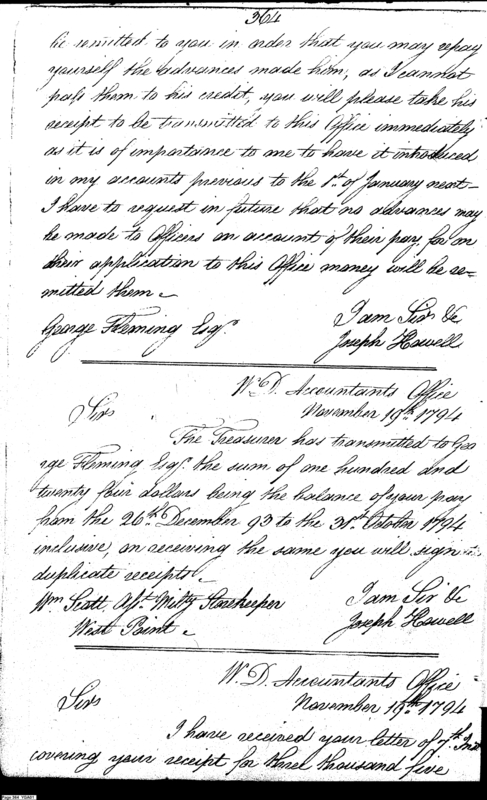 364
be remitted to you in order that you may repay
yourself the advances made him, as I cannot
pass them to his credit, you will please take his
receipt to be transmitted to this Office immediately
as it is of importance to me to have it introduced
in my accounts previous to the 1st of January next—
I have to request in future that no advances may
be made to Officers on account of their pay, for on
their application to this Office money will be re-
mitted them.
I am Sir &c
George Fleming Esqr.
Joseph Howell
W. D. Accountants Office
November 19th 1794
Sir
The Treasurer has transmitted to Geo
rge Fleming Esqr. the sum of one hundred and
twenty four dollars being the balance of your pay
from the 26th December 93 to the 31st October 1794
inclusive, on receiving the same you will sign
duplicate receipts.
Wm Scott Asst. Melty Storekeeper
I am Sir &c
West Point.
Joseph Howell
W. D. Accountants Office
November 19th 1794
Sir
I have received your letter of 7th Inst
covering your receipt for three thousand five